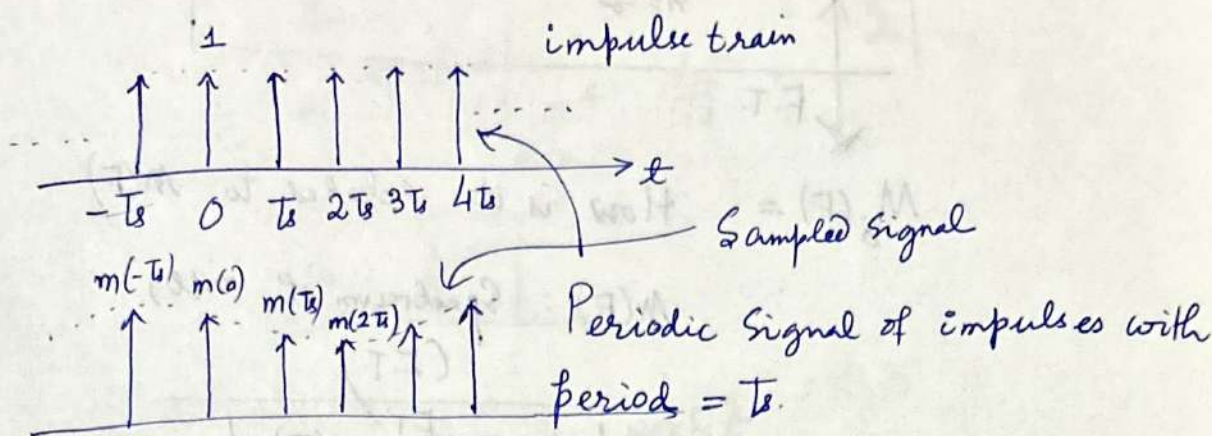 1
impulse train
t
-Ts 0 Ts 2Ts 3Ts 4Ts
Sampled signal
m(-Ts) m(0) m(Ts) m(2Ts)
Periodic Signal of impulses with
period = Ts.